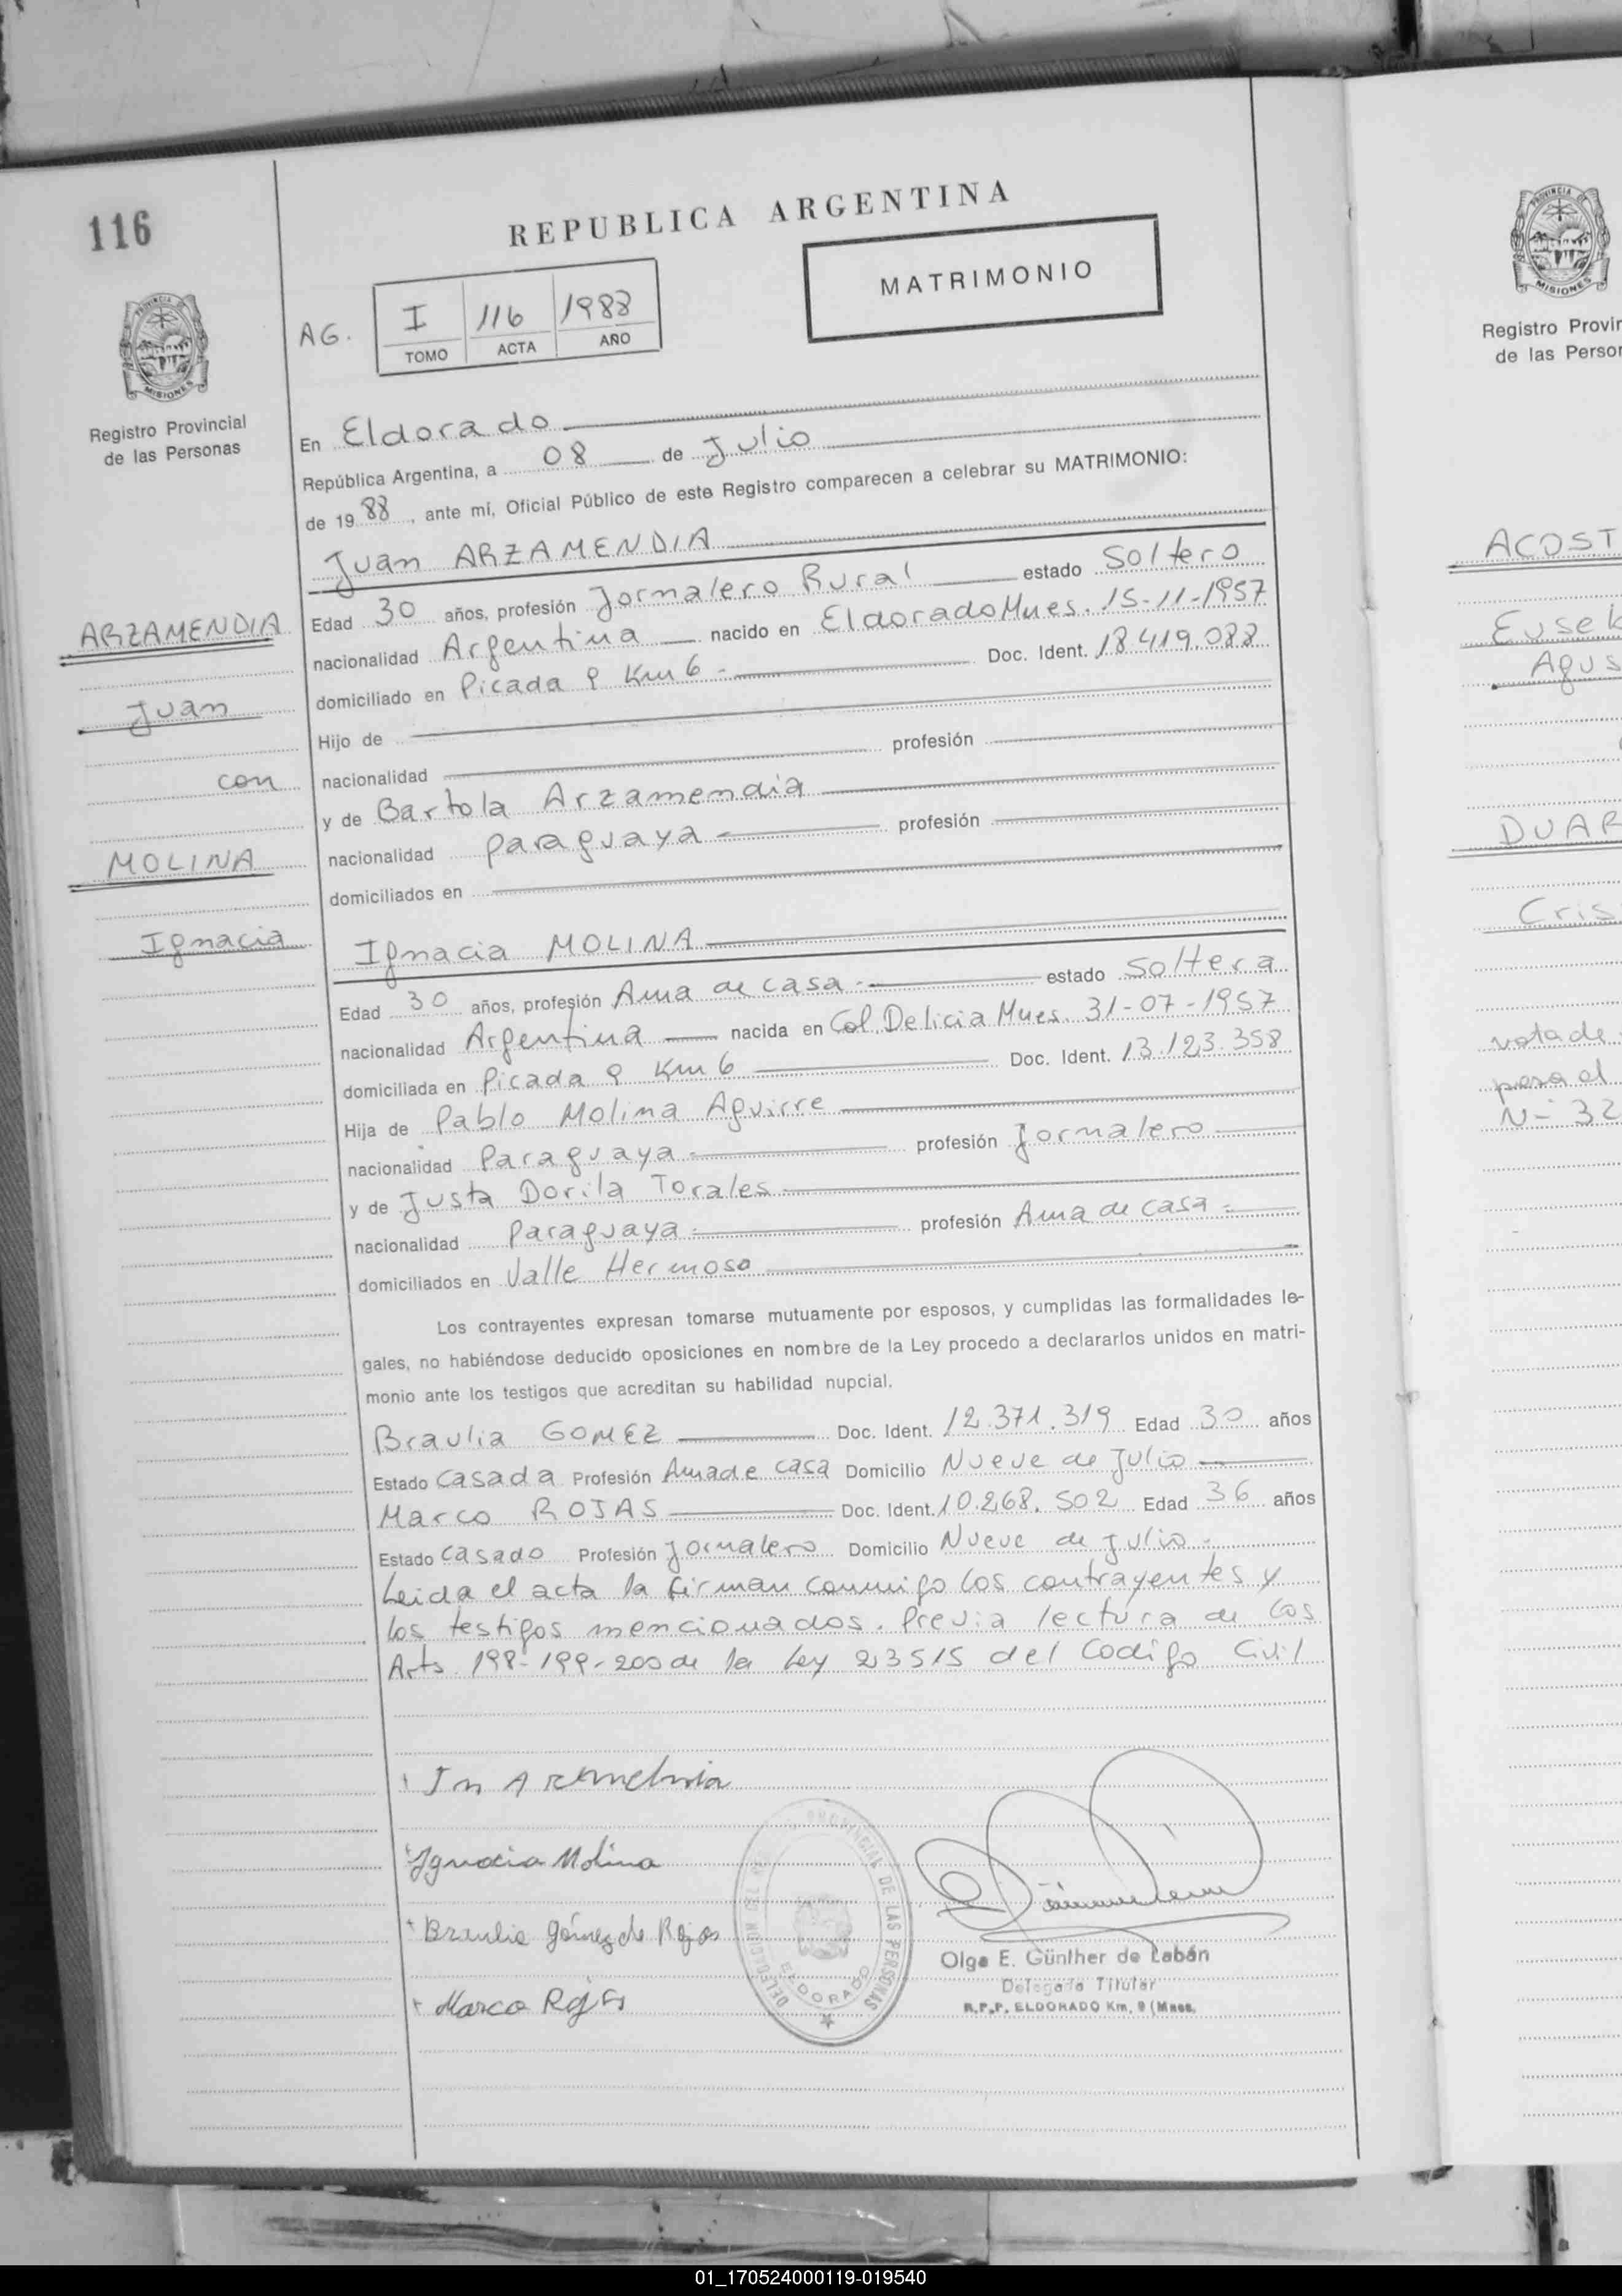 116
REPUBLICA ARGENTINA
MATRIMONIO
AG.
I 116 1988
TOMO ACTA AÑO
PROVINCIA DE
MISIONES
Registro Provincial
de las Personas
En Eldorado
República Argentina, a 08 de Julio
de 19 88, ante mí, Oficial Público de este Registro comparecen a celebrar su MATRIMONIO:
Juan ARZAMENDIA
Edad 30 años, profesión Jornalero Rural estado Soltero
nacionalidad Argentina nacido en Eldorado Mnes. 15-11-1957
domiciliado en Picada 9 Km 6 - Doc. Ident. 18.419.088
Hijo de
nacionalidad profesión
y de Bartola Arzamendia
nacionalidad paraguaya profesión
domiciliados en
ARZAMENDIA
Juan
con
MOLINA
Ignacia
Ignacia MOLINA
Edad 30 años, profesión Ama de casa - estado Soltera
nacionalidad Argentina nacida en Col. Delicia Mnes. 31-07-1957
domiciliada en Picada 9 Km 6 Doc. Ident. 13.123.358
Hija de Pablo Molina Aguirre
nacionalidad Paraguaya - profesión Jornalero
y de Justa Dorila Torales
nacionalidad Paraguaya - profesión Ama de casa -
domiciliados en Valle Hermoso
Los contrayentes expresan tomarse mutuamente por esposos, y cumplidas las formalidades le-
gales, no habiéndose deducido oposiciones en nombre de la Ley procedo a declararlos unidos en matri-
monio ante los testigos que acreditan su habilidad nupcial.
Braulia GOMEZ Doc. Ident. 12.371.319 Edad 30 años
Estado Casada Profesión Ama de casa Domicilio Nueve de Julio
Marco ROJAS Doc. Ident. 10.268.502 Edad 36 años
Estado Casado Profesión Jornalero Domicilio Nueve de Julio -
Leida el acta la firman conmigo los contrayentes y
los testigos mencionados. Previa lectura de los
Arts 198-199-200 de la Ley 23515 del Codigo Civil
Ignacia Molina
Braulia Gómez de Rojas
Marco Rojas
PROVINCIAL DE LAS PERSONAS
ELDORADO
Olga E. Günther de Labán
Delegada Titular
R.P.P. ELDORADO Km. 9 (Mnes.
PROVINCIA DE
MISIONES
Registro Provin
de las Person
ACOST
Euseb
Agus
DUAR
Cris
nota de
para el
N- 32
01_170524000119-019540